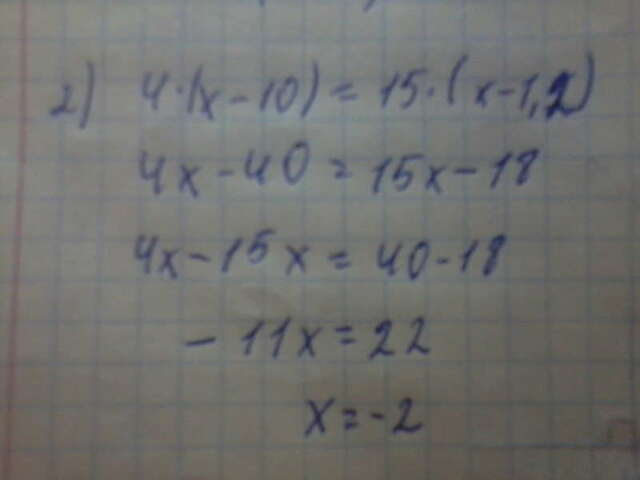 2) 4·(x-10)=15·(x-1,2)
4x-40=15x-18
4x-15x=40-18
-11x=22
x=-2